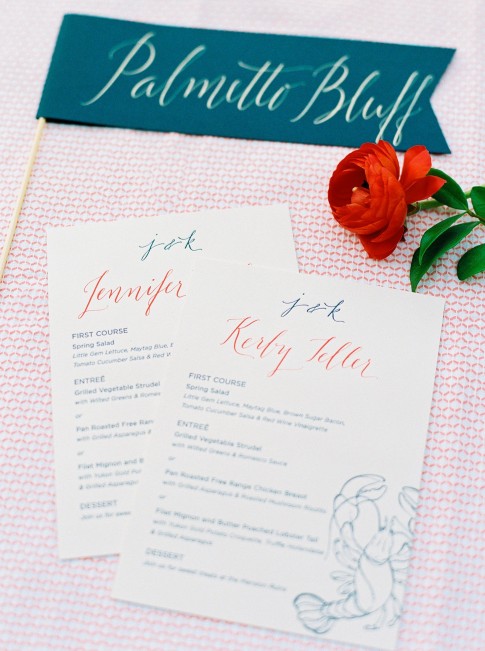 Palmetto Bluff
j & k
Jennifer
FIRST COURSE
Spring Salad
Little Gem Lettuce, Maytag Blue,
Tomato Cucumber Salsa & Red
ENTREÉ
Grilled Vegetable Strudel
with Wilted Greens & Romesco
or
Pan Roasted Free Range
with Grilled Asparagus
or
Filet Mignon and
with Yukon Gold
& Grilled Asparagus
DESSERT
Join us for sweet
j & k
Kerby Teller
FIRST COURSE
Spring Salad
Little Gem Lettuce, Maytag Blue, Brown Sugar Bacon,
Tomato Cucumber Salsa & Red Wine Vinaigrette
ENTREÉ
Grilled Vegetable Strudel
with Wilted Greens & Romesco Sauce
or
Pan Roasted Free Range Chicken Breast
with Grilled Asparagus & Roasted Mushroom
or
Filet Mignon and Butter Poached Lobster Tail
with Yukon Gold Potato Croquette, Truffle Hollandaise
& Grilled Asparagus
DESSERT
Join us for sweet treats at the Mansion Ruins